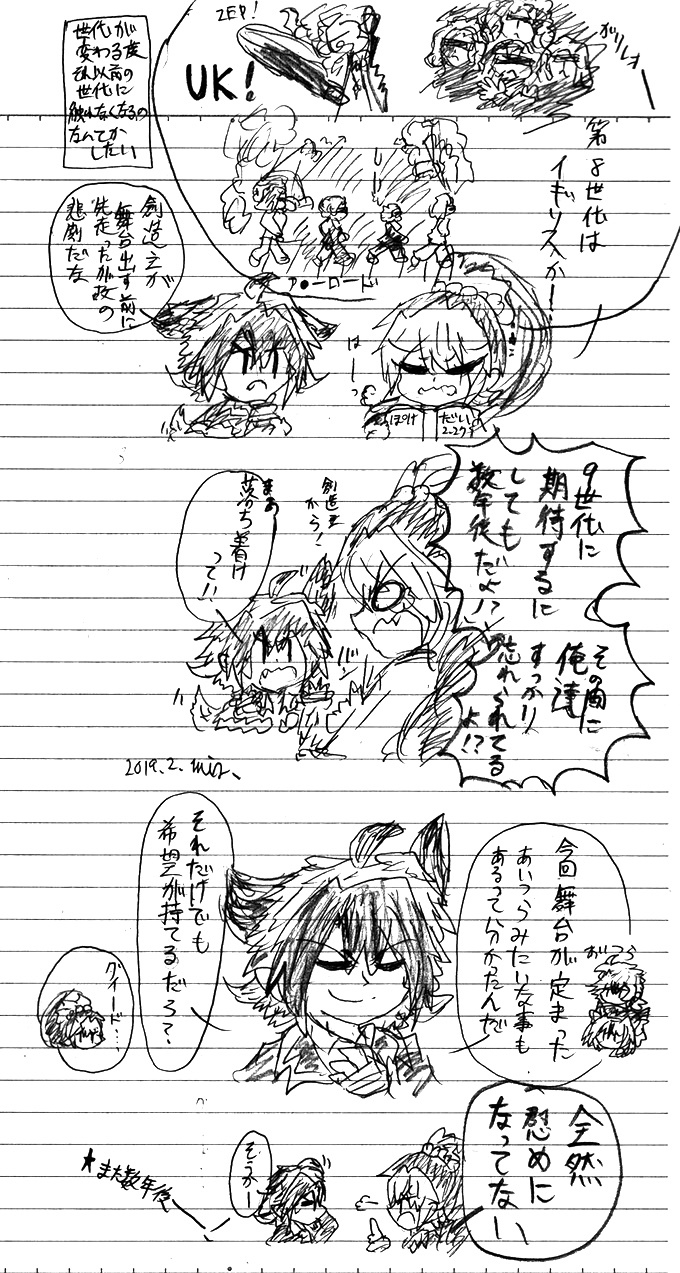 世代が
変わる度
それ以前の
世代に
触れなくなるの
なんてか
したい
ZEP!
UK!
ガリレオ
第8世代は
イギリスかー!
ア●ーロード
創造主が
舞台出す前に
先走ったが故の
悲劇だな
はーっ
ぽけ
だい
9世代に
期待するに
しても
数年後だよ!?
その間に
俺達
すっかり
忘れられてる
よ!?
創造主
から!
まあ
落ち着け
って!!
バン
2019.2.min.
今回舞台が定まった
あいつらみたいな事も
あるって分かったんだ
それだけでも
希望が持てるだろ?
おーつら
ダイード…
全然
慰めに
なってない
そうかー
★また数年後